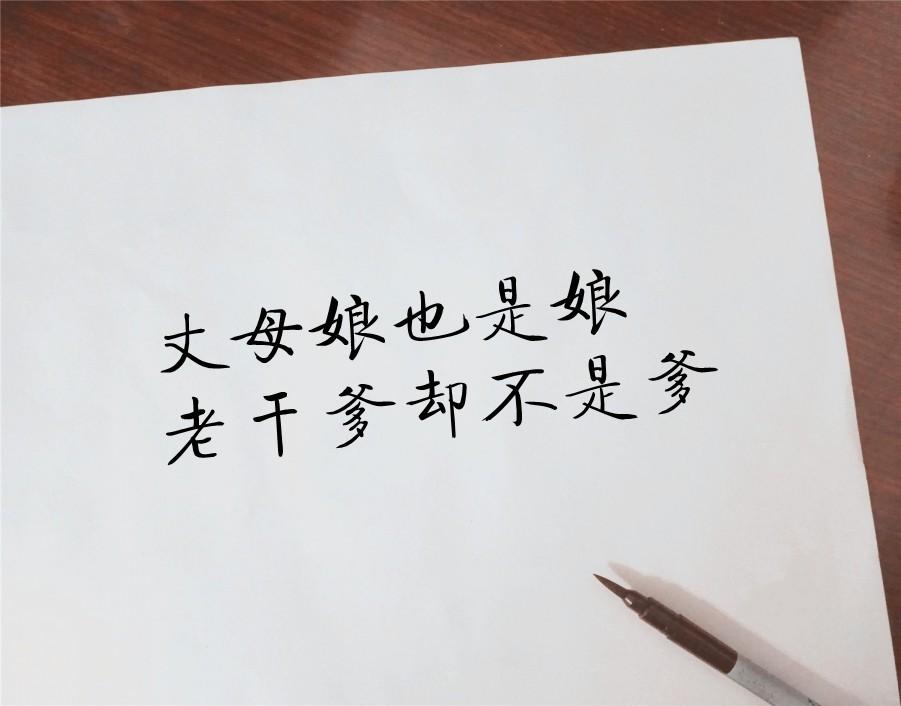 丈母娘也是娘
老干爹却不是爹